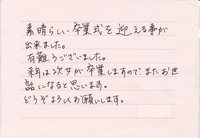 素晴らしい卒業式を迎える事が
出来ました。
有難うございました。
来年は次女が卒業しますので、またお世
話になると思います。
どうぞよろしくお願いします。